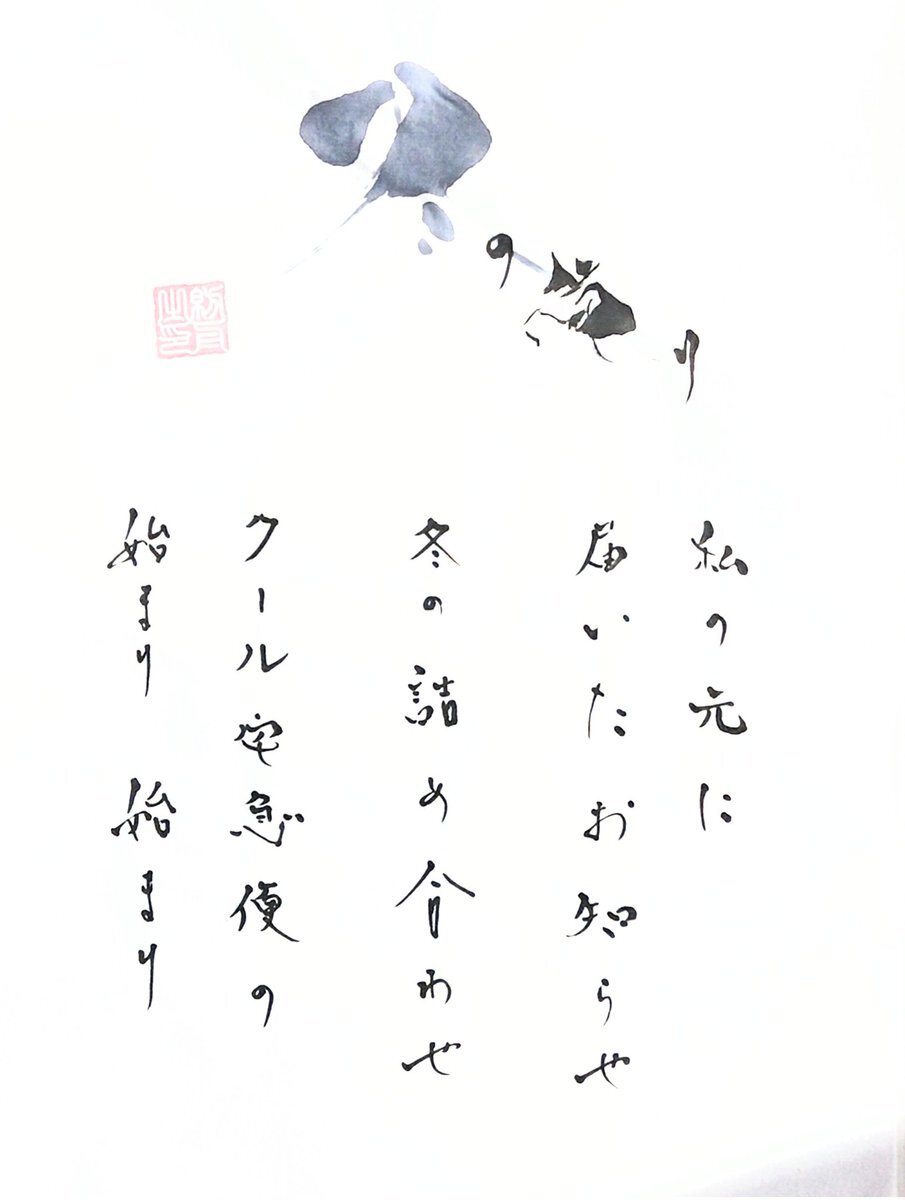 冬の
私の元に
届いたお知らせ
冬の詰め合わせ
クール宅急便の
始まり 始まり